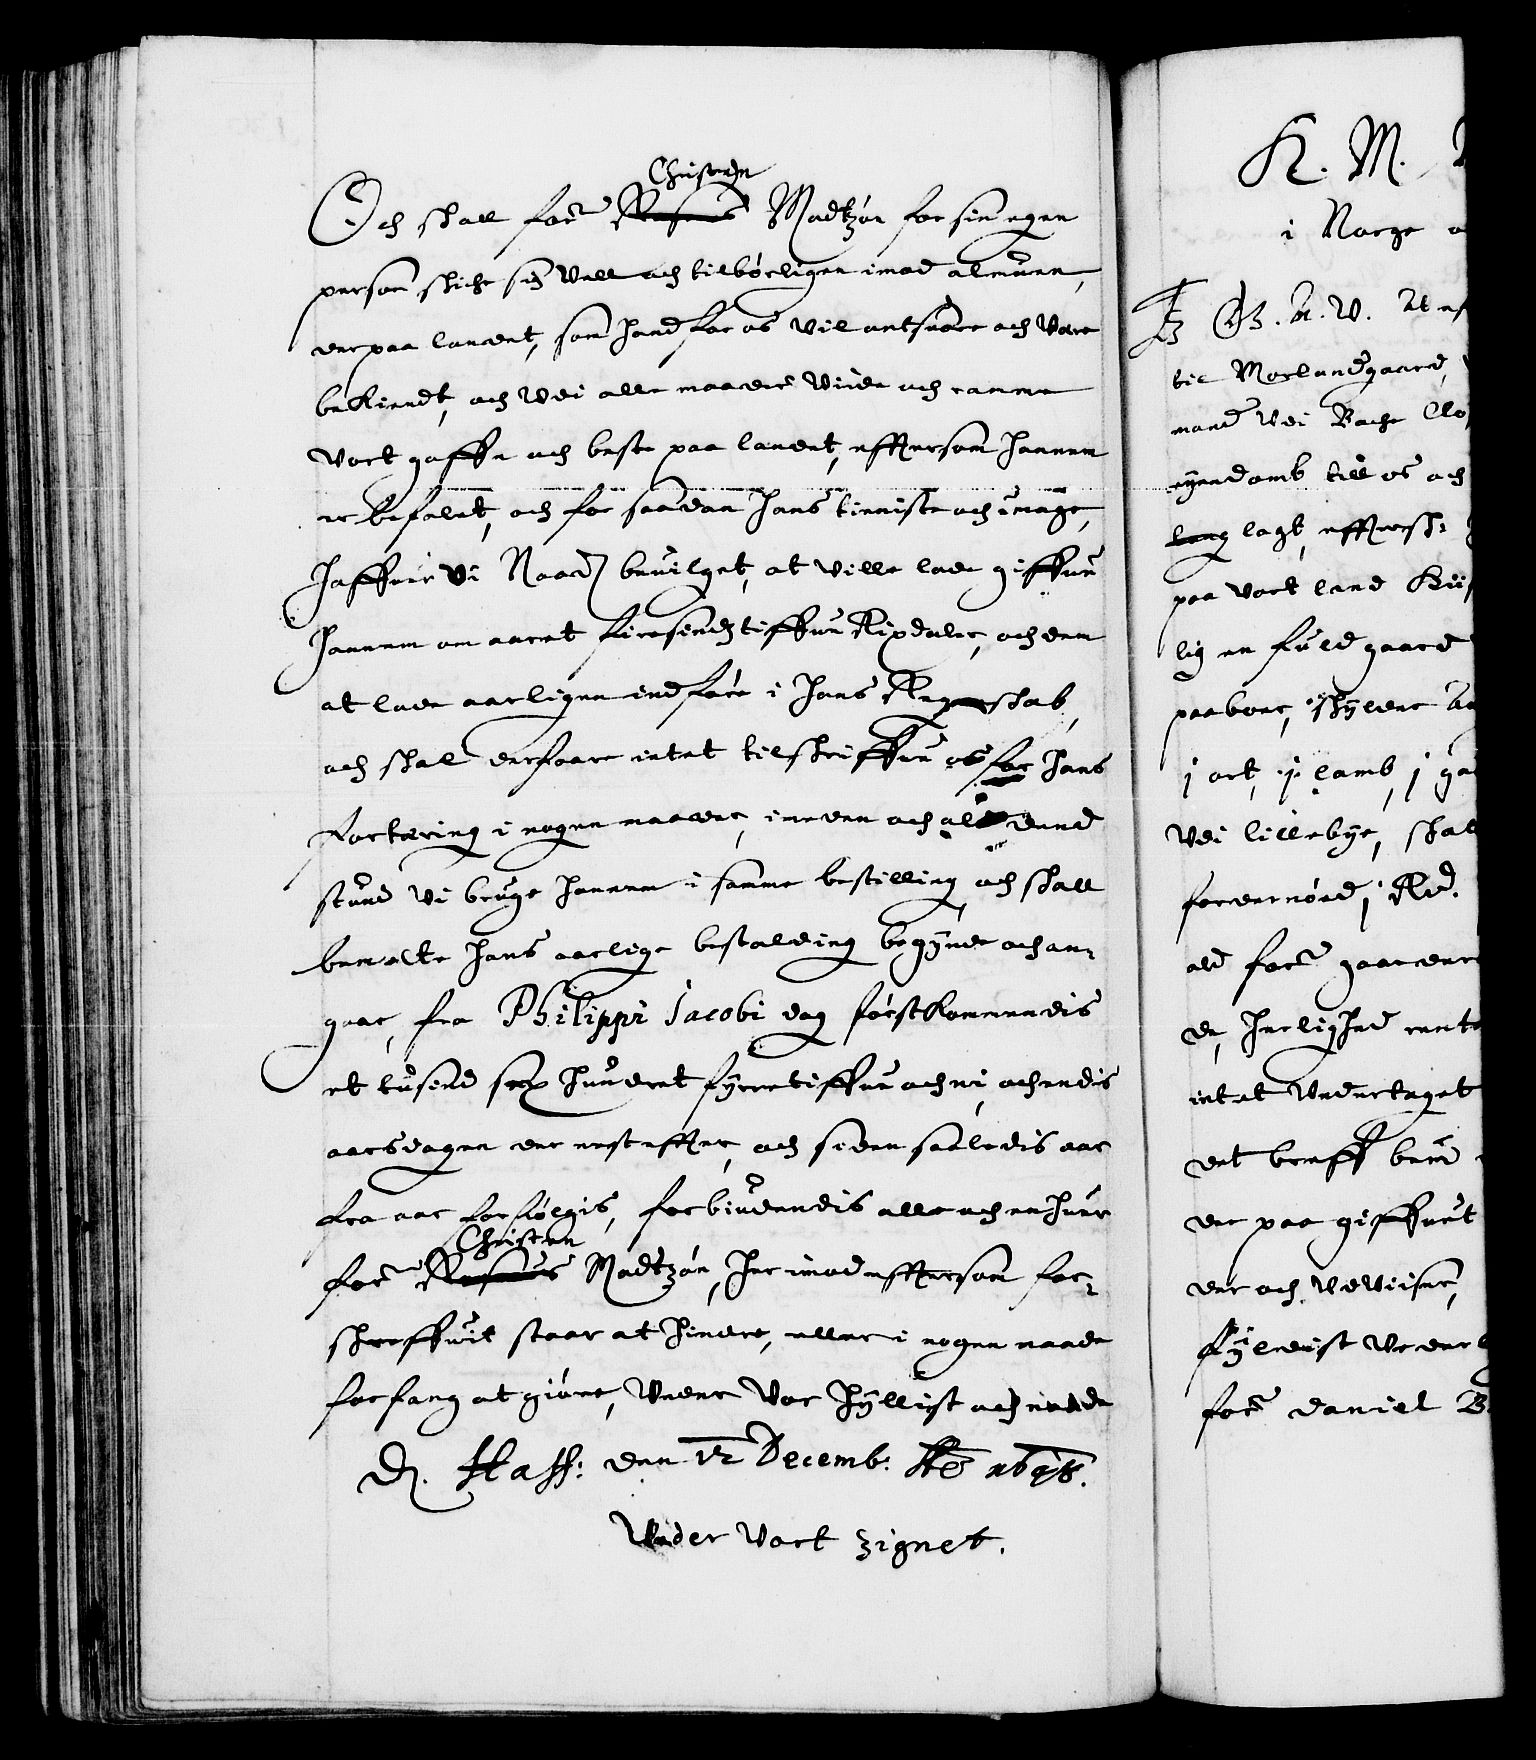 Christen
Och shall for:ne Rasmus Madtzön for sin egen
person skiche sig vell och tilbörligen imod almuen,
der paa landet, som hand for os vil antsuare och være
bekiendt, och udi alle maader vide och ramme
vort gaffn och beste paa landet, efftersom hannem
er befalet, och for saadan hans tieniste och umage,
haffuer vi Naad: beuilget, at ville lade giffue
hannem om aaret firesindztiffue Rixdaler, och dem
at lade aarligen indföre i hans Regenskab,
och skal derfoare intet tilskriffue os for hans
fortæring i nogen maader, imeden och al den
stund vi bruge hannem i samme bestilling och skall
bemelte hans aarlige bestalding begynde och an-
gaae, fra Philippi Jacobi dag förstkommendis
et tusind sex hundret fyrretiffue och ni, och endis
aarsdagen der nest effter, och siden saaledis aar
fra aar forfiölgis, forbiudendis alle och en huer
Christen
for:ne Rasmus Madtzön, her imod efftersom for-
skreffuit staar at hindre, eller i nogen maade
forfang at giöre, under vor hyllist och naade
D. Haff: den 12 Decemb: A:o 1648.
Under vort zignet.
K. M.
i Norge
G. A. V. At
til Morlandgaard,
mand udi Bache Clo
eyendomb till os och
lang lagt, effterskr:
paa vort land
lig en fuld gaard
paaboer, skylder
j ort, j lamb, j
udi lillebye, skal
fordernöed j Rd.
ald for:ne gaarder
de, herlighed rente
intet undertaget
det breff
der paa giffuet
der och udviiser,
fyldist vederl
for:ne Daniel B